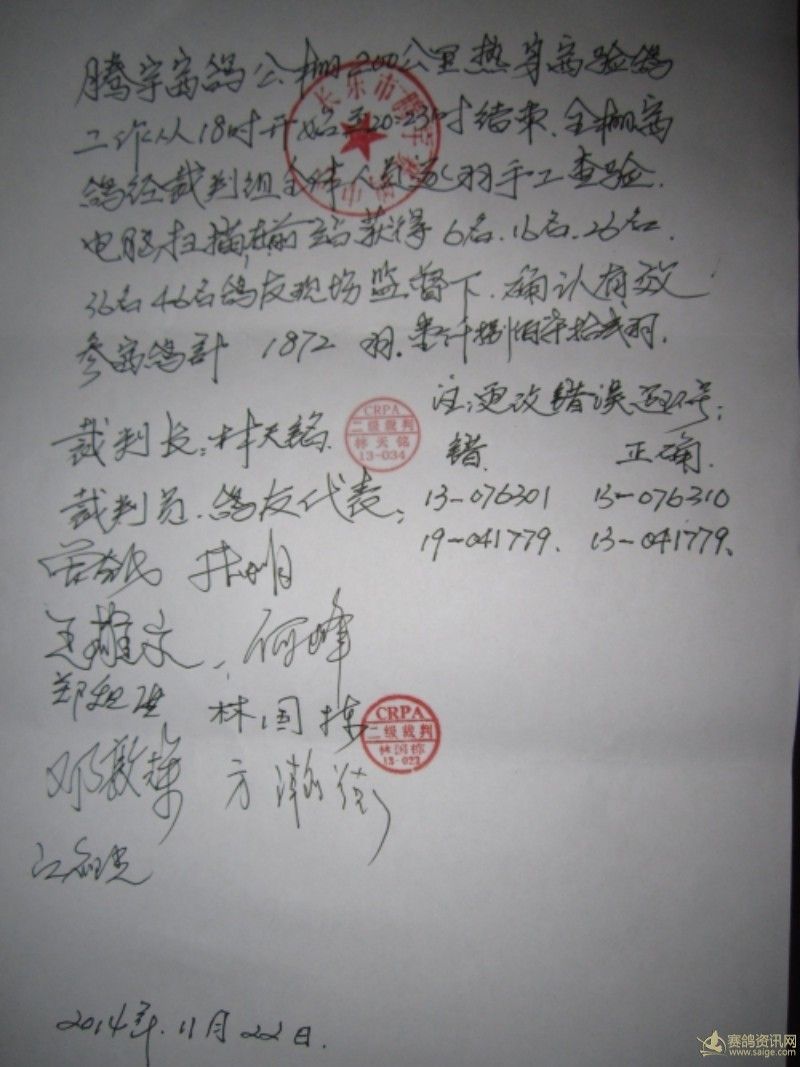 腾宇赛鸽公棚200公里热身赛验鸽
工作从18时开始至20:23时结束.全棚赛
鸽经裁判组全体人员逐羽手工查验.
电脑扫描,在前站获得6名.16名.26名.
36名46名鸽友现场监督下.确认有效
参赛鸽计 1872 羽.壹仟捌佰柒拾贰羽.
注:更改错误环号:
裁判长:林天铭
CRPA
二级裁判
林天铭
13-034
错. 正确.
裁判员.鸽友代表:
13-076301 13-076310
19-041779. 13-041779.
何峰
林国栋
CRPA
二级裁判
林国栋
13-023
邓敦
方
江
2014年.11月22日.
长乐市腾宇
赛鸽资讯网
www.saige.com